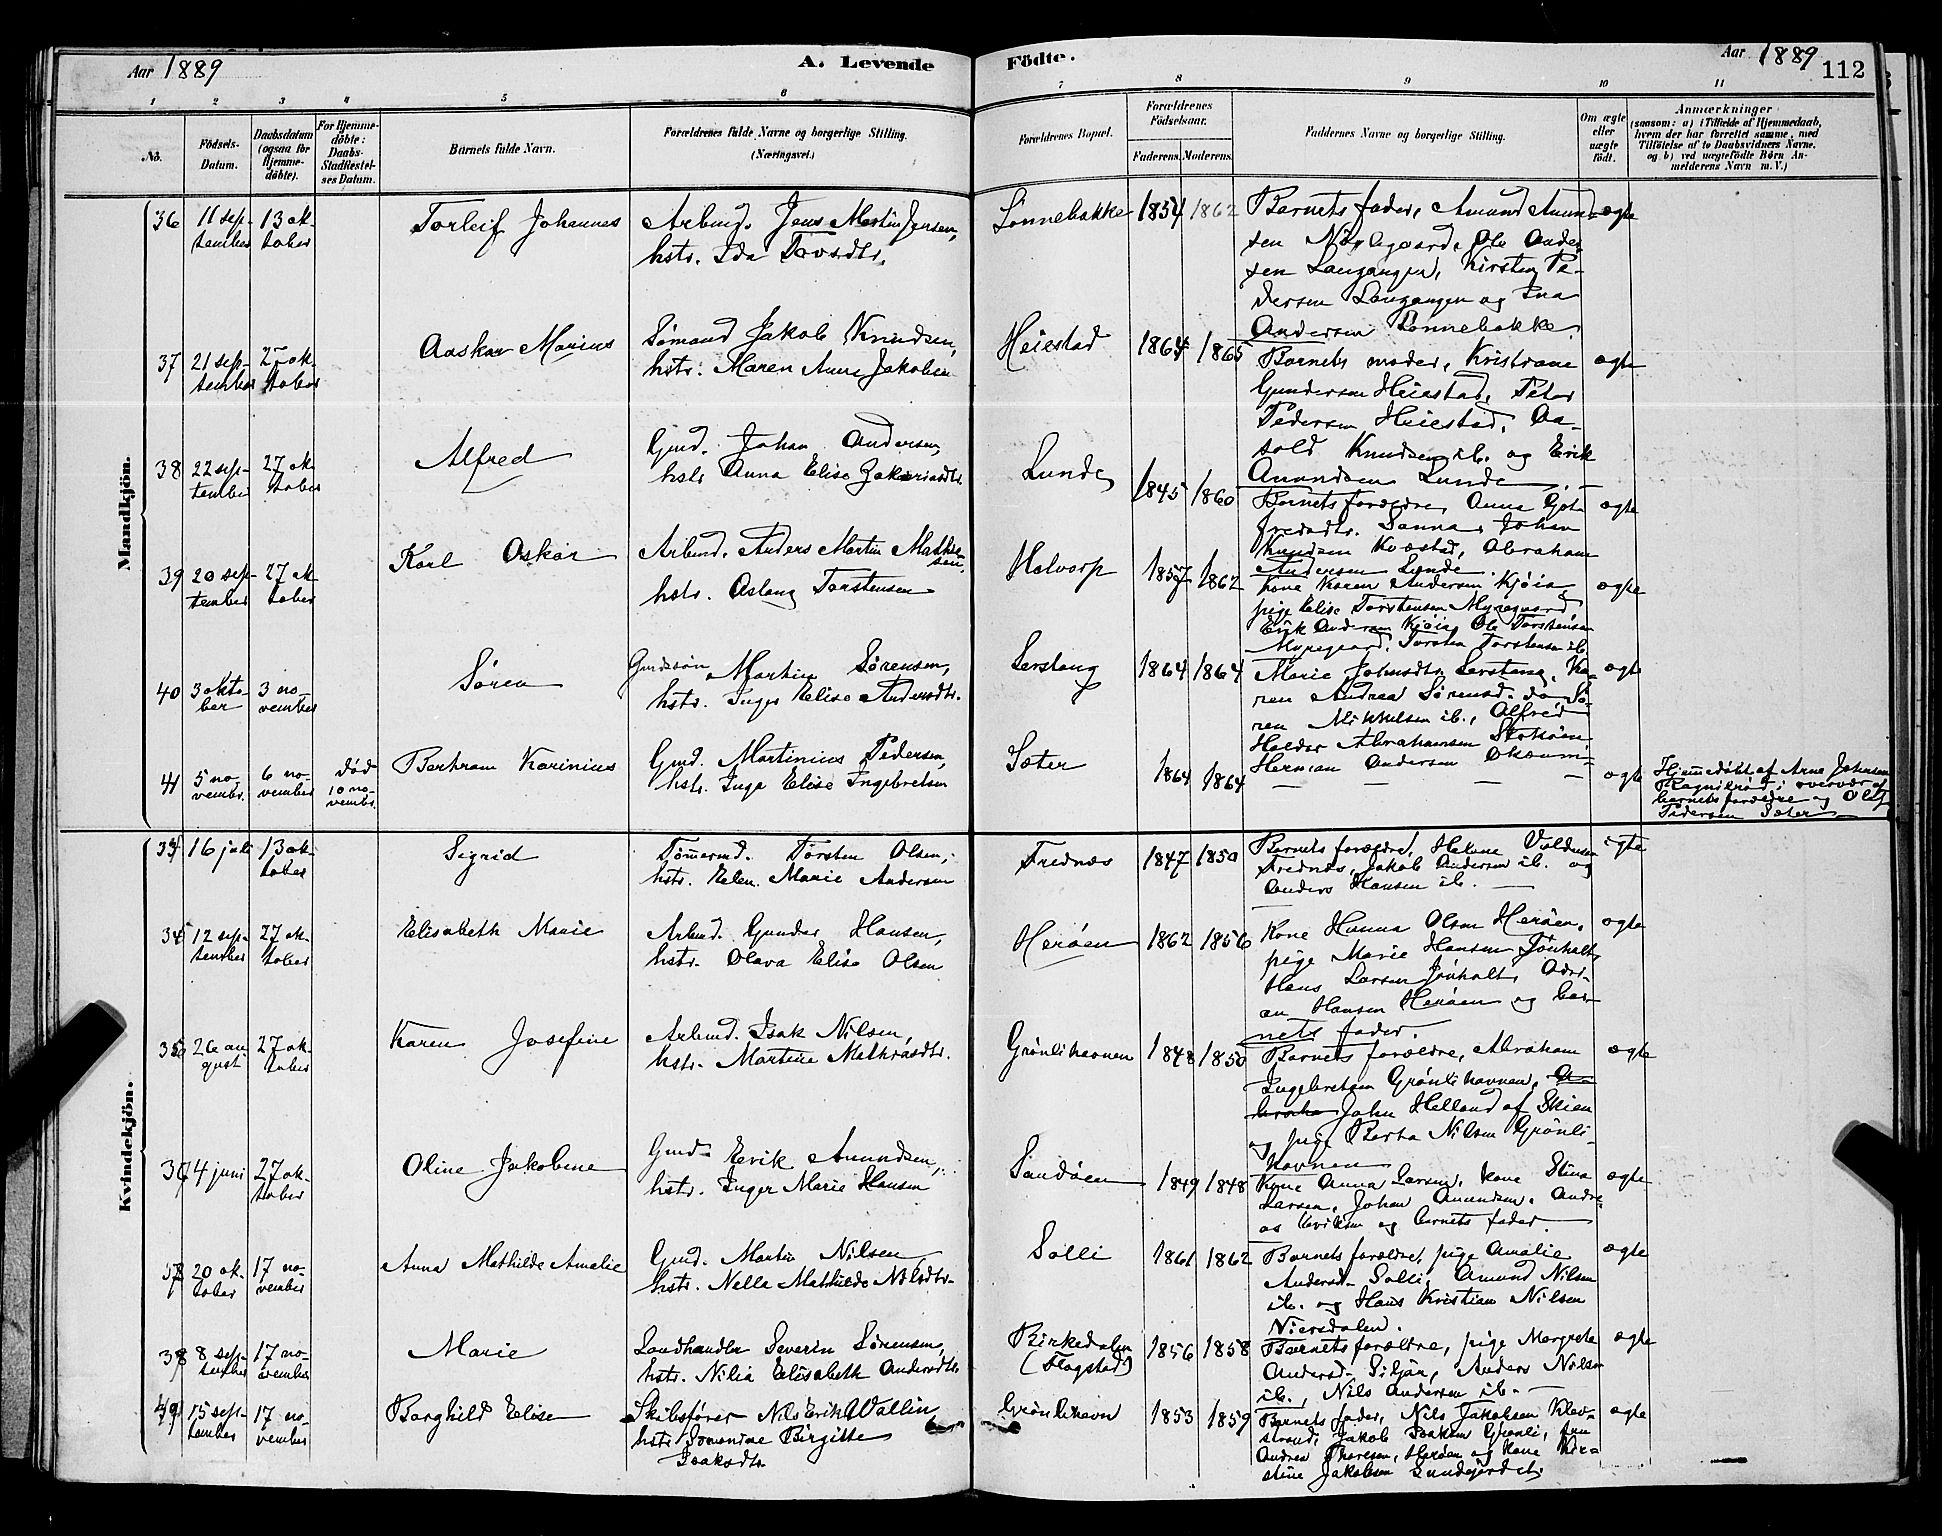 Aar 1889
A. Levende
Födte.
Aar 1889
112
1 2 3 4 5 6 7 8 9 10 11
No.
Födsels-
Datum.
Daabsdatum
(ogsaa för
Hjemme-
döbte).
For Hjemme-
döbte:
Daabs-
Stadfæstel-
ses Datum.
Barnets fulde Navn.
Forældrenes fulde Navne og borgerlige Stilling.
(Næringsvei.)
Forældrenes Bopæl.
Forældrenes
Födselsaar.
Faderens. Moderens.
Faddernes Navne og borgerlige Stilling.
Om ægte
eller
uægte
födt.
Anmærkninger
(saasom: a) i Tilfælde af Hjemmedaab,
hvem der har forrettet samme, med
Tilföielse af to Daabsvidners Navne,
og b) ved uægtefödte Börn An-
melderens Navn m.V.)
Mandkjön.
36
11 sep-
tember
13 ok-
tober
Torleif Johannes
Arbmd. Jens Martin Jensen,
hstr. Ida
Lønnebakke
1854 1862
Barnets fader, Amund Amund-
sen Ole Ander-
sen Langangen, Kirsten Pe-
dersen Langangen og Ina
Andersen Lønnebakke
ægte
37
21 sep-
tember
27 ok-
tober
Aaskar Marius
Sømand Jakob Knudsen,
hstr. Maren Anne Jakobsen
Heiestad
1864 1865
Barnets moder, Kristiane
Gundersen Heiestad, Peter
Pedersen Heiestad, Aa-
sold Knudsen ib. og Erik
Amundsen Lunde
ægte
38
22 sep-
tember
27 ok-
tober
Alfred
Gmd. Johan Andersen,
hstr Anna Elise Zakariasdtr.
Lunde
1845 1860
Barnets forældre, Anna Got-
fredsdtr. Sanna, Johan
Knudsen Kvestad, Abraham
Andersen Lunde
ægte
39
20 sep-
tember
27 ok-
tober
Karl Oskar
Arbmd. Anders Martin Mathie-
sen,
hstr. Aslaug Torstensen
Halvorp
1857 1862
Kone Karen Andersen Kjøia,
pige Elise Torstensen Myregaard,
Erik Andersen Kjøia, Ole Torstensen
Myregaard, Torsten Torstensen ib.
ægte
40
3 okto-
ber
3 no-
vember
Søren
Gmdssøn Martin Sørensen,
hstr. Inger Elise Andersdtr.
Lerstang
1864 1864
Marie Johnsdtr. Lerstang, Ka-
ren Andrea Sørensd. do, Sø-
ren Mikkelsen ib., Alfred
Halvor Abrahamsen
Herman Andersen
ægte
41
5 no-
vembr.
6 no-
vember
død
10 no-
vembr.
Bertram Karinius
Gmd. Martinius Pedersen,
hstr. Inga Elise Ingebretsen
Sæter
1864 1864
— — — —
ægte
Hjemmedøbt af Arne Johnsen
i overvær af
barnets forældre og Oluf
Pedersen Sæter
Kvindekjön.
33
16 juli
13 ok-
tober
Sigrid
Tømermd. Torsten Olsen,
hstr. Elen Marie Andersen
Frednes
1847 1850
Barnets forældre, Helene
Frednes, Jakob Andersen ib. og
Anders Hansen ib.
ægte
34
12 sep-
tember
27 ok-
tober
Elisabeth Marie
Arbmd. Gunder Hansen,
hstr. Olava Elise Olsen
Herøen
1862 1856
Kone Hanna Olsen Herøen,
pige Marie Hansen Jønholt,
Hans Larsen Jønholt, Adri-
an Hansen Herøen og bar-
nets fader.
ægte
35
26 au-
gust
27 ok-
tober
Karen Josefine
Arbmd. Isak Nilsen,
hstr. Martine Mathiasdtr.
Grønlihavnen
1848 1850
Barnets forældre, Abraham
Ingebretsen Grønlihavnen,
John Helland af Skien
og pige Berta Nilsen Grønli-
havnen
ægte
36
4 juni
27 ok-
tober
Oline Jakobine
Gmd. Eerik Amundsen,
hstr. Inger Marie Hansen
Sandøen
1849 1848
Kone Anna Larsen, kone Stina
Larsen, Johan Amundsen, Andre-
as Eeriksen og barnets fader.
ægte
37
20 ok-
tober
17 no-
vember
Anna Mathilde Amalie
Gmd. Martin Nilsen
hstr. Nella Mathilde Nilsdtr.
Solli
1861 1862
Barnets forældre, pige Amalie
Andersd. Solli, Amund Nilsen
ib. og Hans Kristian Nilsen
Niersdalen.
ægte
38
8 sep-
tember
17 no-
vember
Marie
Landhandler Severin Sørensen,
hstr. Nilia Elisabeth Andersdtr.
Birkedalen
(Flogstad)
1856 1858
Barnets forældre, pige Margrete
Andersd. Siljan, Anders Nilsen
ib., Nils Andersen ib.
ægte
39
15 sep-
tember
17 no-
vember
Borghild Elise
Skibsfører Nils Erik Wallin
hstr. Birgitte
Isaksdtr.
Grønlihavn
1853 1859
Barnets fader, Nils Jakobsen Klev-
strand, Jakob Isaksen Grønli, fru
Andrea Thoresen, Herøen og kone Kir-
stine Jakobsen Sundejordet.
ægte